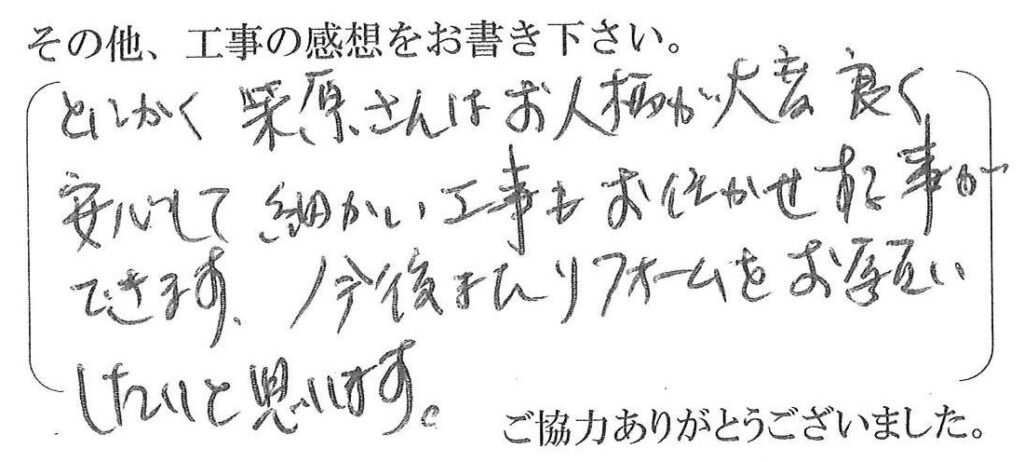 その他、工事の感想をお書き下さい。
とにかく 栗原さんはお人柄が大変良く
安心して 細かい工事もお任かせする事が
できます。今後またリフォームをお願い
したいと思います。
ご協力ありがとうございました。